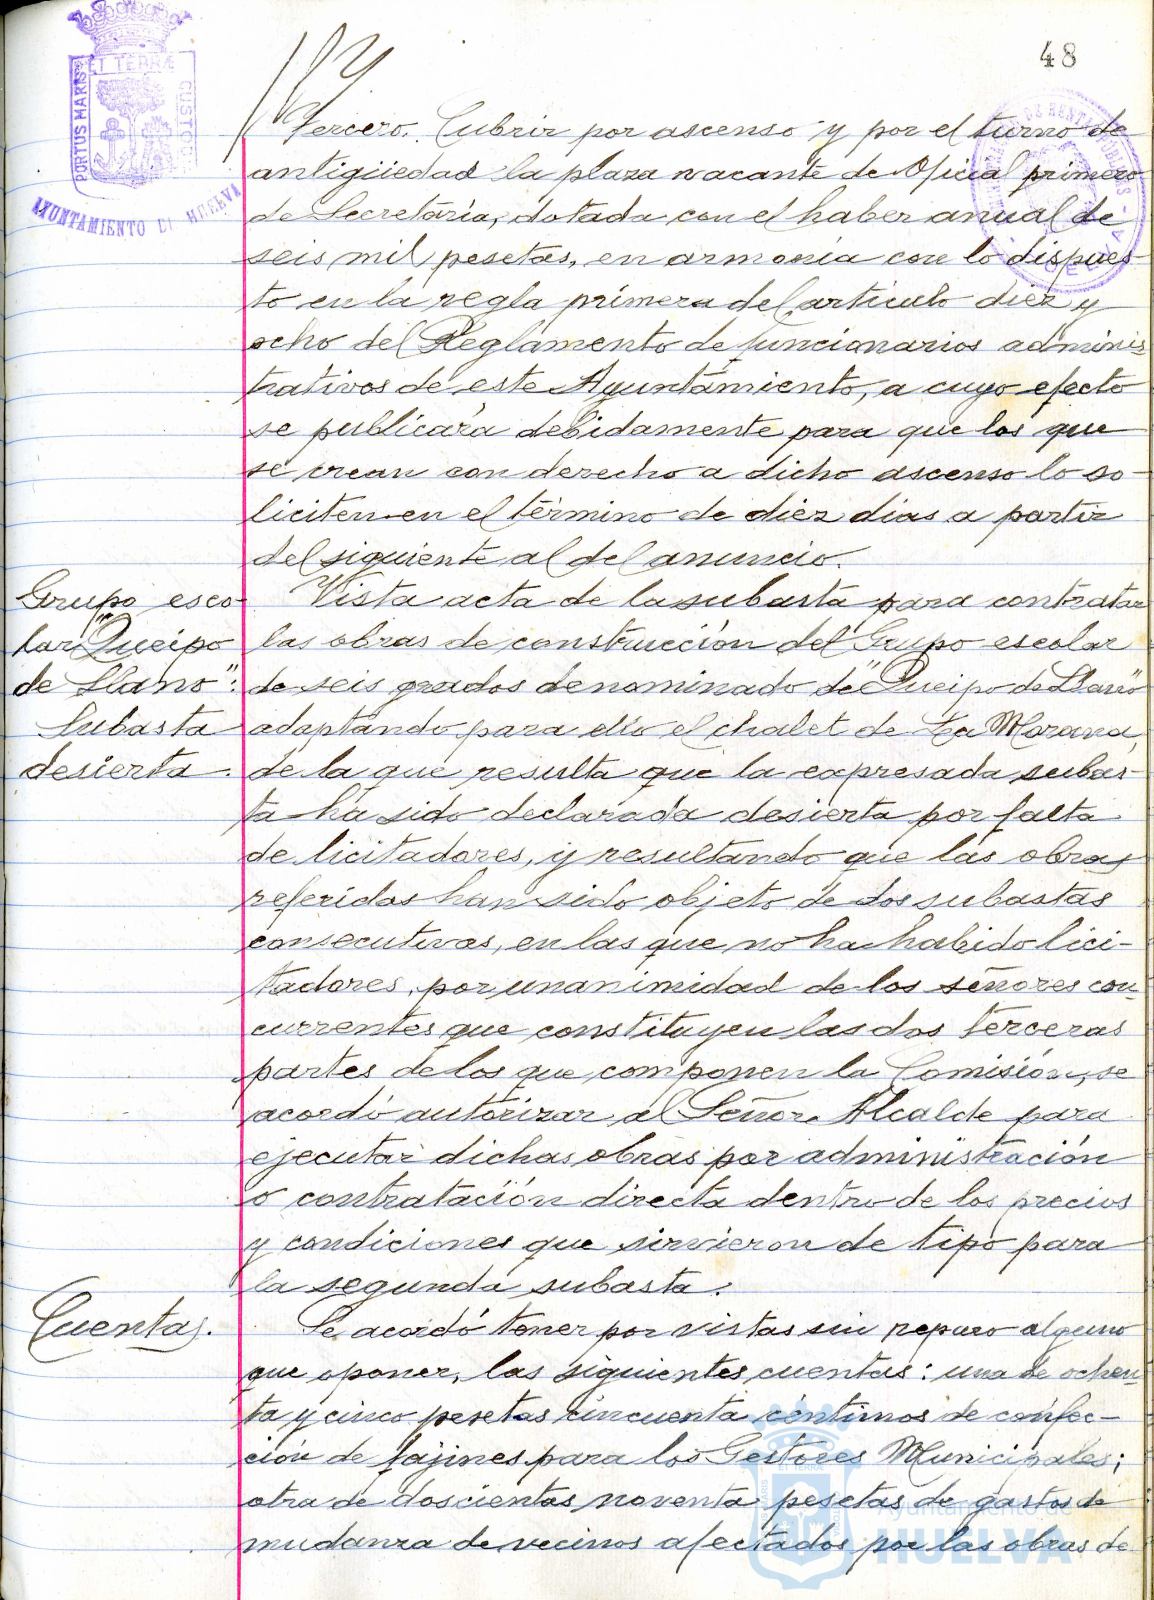 48
PORTUS MARIS ET TERRÆ CUSTODIA
AYUNTAMIENTO DE HUELVA
Tercero. Cubrir por ascenso y por el turno de
antigüedad la plaza vacante de Oficial primero
de Secretaría, dotada con el haber anual de
seis mil pesetas, en armonía con lo dispues-
to en la regla primera del artículo diez y
ocho del Reglamento de funcionarios adminis-
trativos de este Ayuntamiento, a cuyo efecto
se publicará debidamente para que los que
se crean con derecho a dicho ascenso lo so-
liciten en el término de diez dias a partir
del siguiente al del anuncio.
Grupo esco-
lar "Queipo
de Llano":
Subasta
desierta.
Vista acta de la subasta para contratar
las obras de construcción del Grupo escolar
de seis grados denominado de "Queipo de Llano"
adaptando para ello el chalet de La Morana,
de la que resulta que la expresada subas-
ta ha sido declarada desierta por falta
de licitadores, y resultando que las obras
referidas han sido objeto de dos subastas
consecutivas, en las que no ha habido lici-
tadores, por unanimidad de los señores con-
currentes que constituyen las dos terceras
partes de los que componen la Comisión, se
acordó autorizar al Señor Alcalde para
ejecutar dichas obras por administración
o contratación directa dentro de los precios
y condiciones que sirvieron de tipo para
la segunda subasta.
Cuentas.
Se acordó tener por vistas sin reparo alguno
que oponer, las siguientes cuentas: una de ochen-
ta y cinco pesetas cincuenta céntimos de confec-
ción de fajines para los Gestores Municipales;
otra de doscientas noventa pesetas de gastos de
mudanza de vecinos afectados por las obras de
Ayuntamiento de
HUELVA